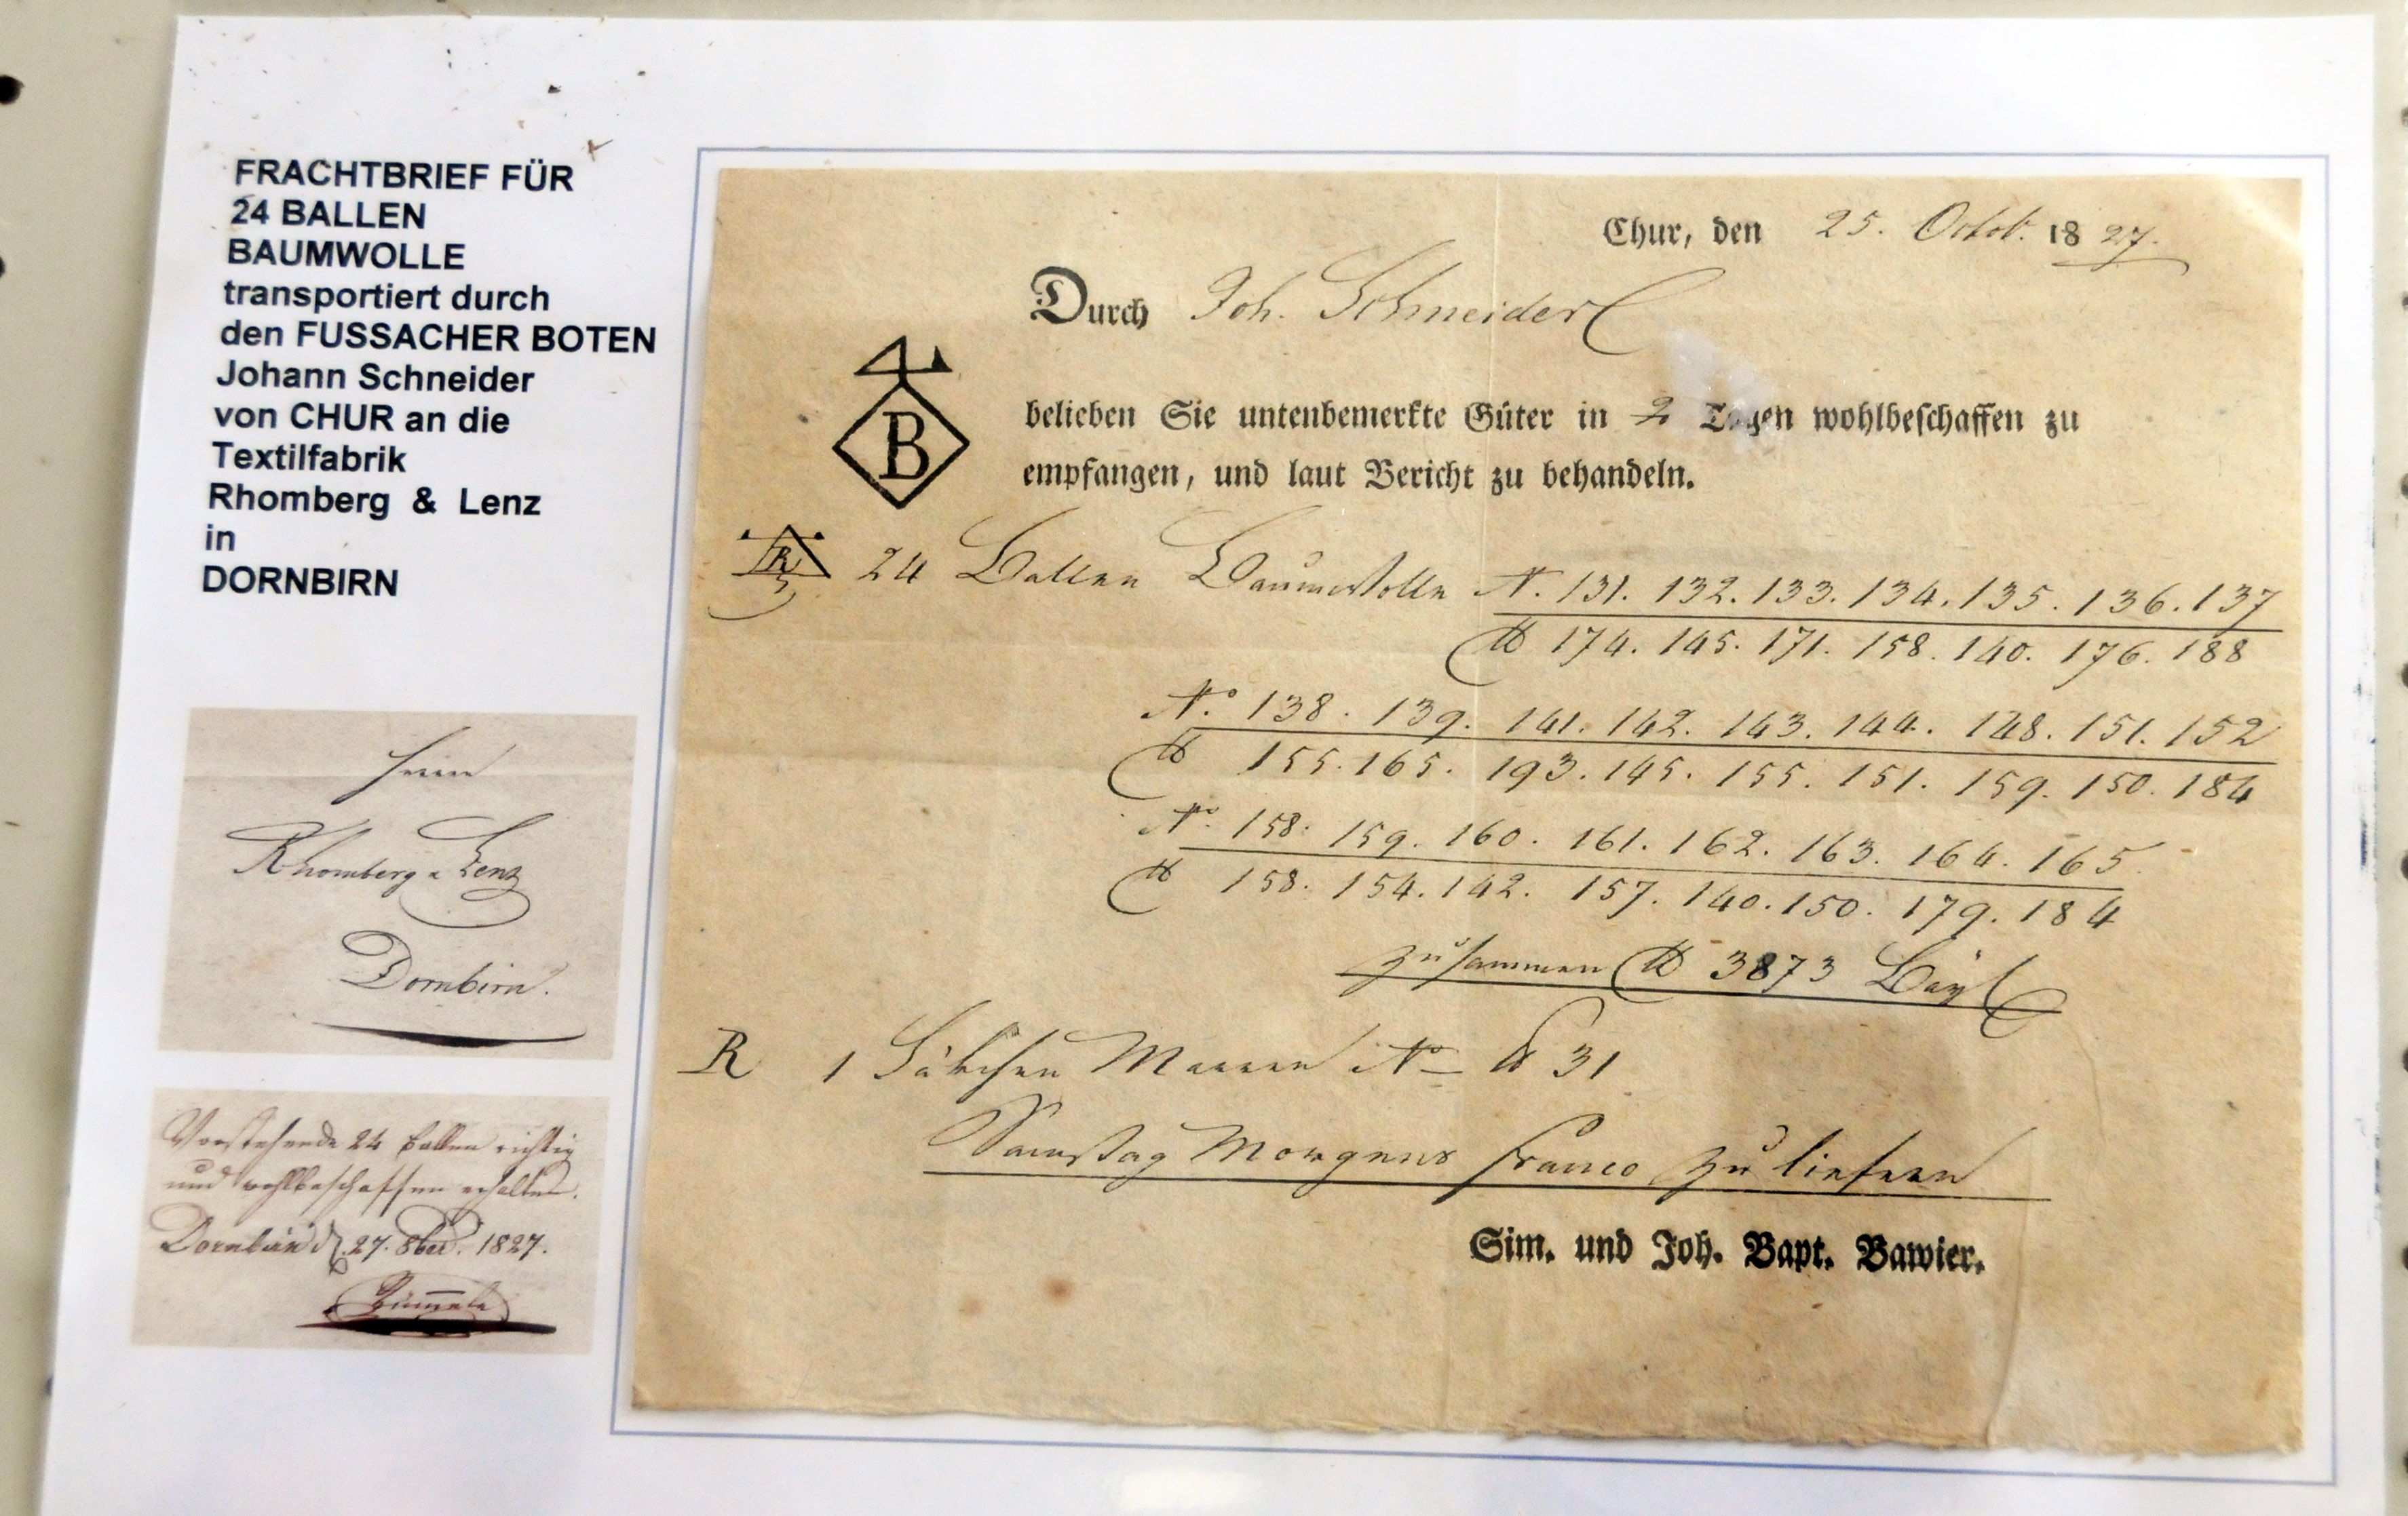 FRACHTBRIEF FÜR
24 BALLEN
BAUMWOLLE
transportiert durch
den FUSSACHER BOTEN
Johann Schneider
von CHUR an die
Textilfabrik
Rhomberg & Lenz
in
DORNBIRN
Herrn
Rhomberg & Lenz
Dornbirn.
Vorstehende 24 Ballen richtig
und wohlbeschaffen erhalten.
Dornbirn d. 27. 8ber. 1827.
Chur, den 25. Octob. 1827.
Durch Joh. Schneider
B
belieben Sie untenbemerkte Güter in 2 Tagen wohlbeschaffen zu
empfangen, und laut Bericht zu behandeln.
R 24 Ballen Baumwolle N. 131. 132. 133. 134. 135. 136. 137
℔ 174. 145. 171. 158. 140. 176. 188
No. 138. 139. 141. 142. 143. 144. 148. 151. 152
℔ 155. 165. 193. 145. 155. 151. 159. 150. 184
No. 158. 159. 160. 161. 162. 163. 164. 165.
℔ 158. 154. 142. 157. 140. 150. 179. 184
zusammen ℔ 3873
R 1 Säkchen Waaren No — ℔ 31
Samstag Morgens franco zu liefern
Sim. und Joh. Bapt. Bawier.